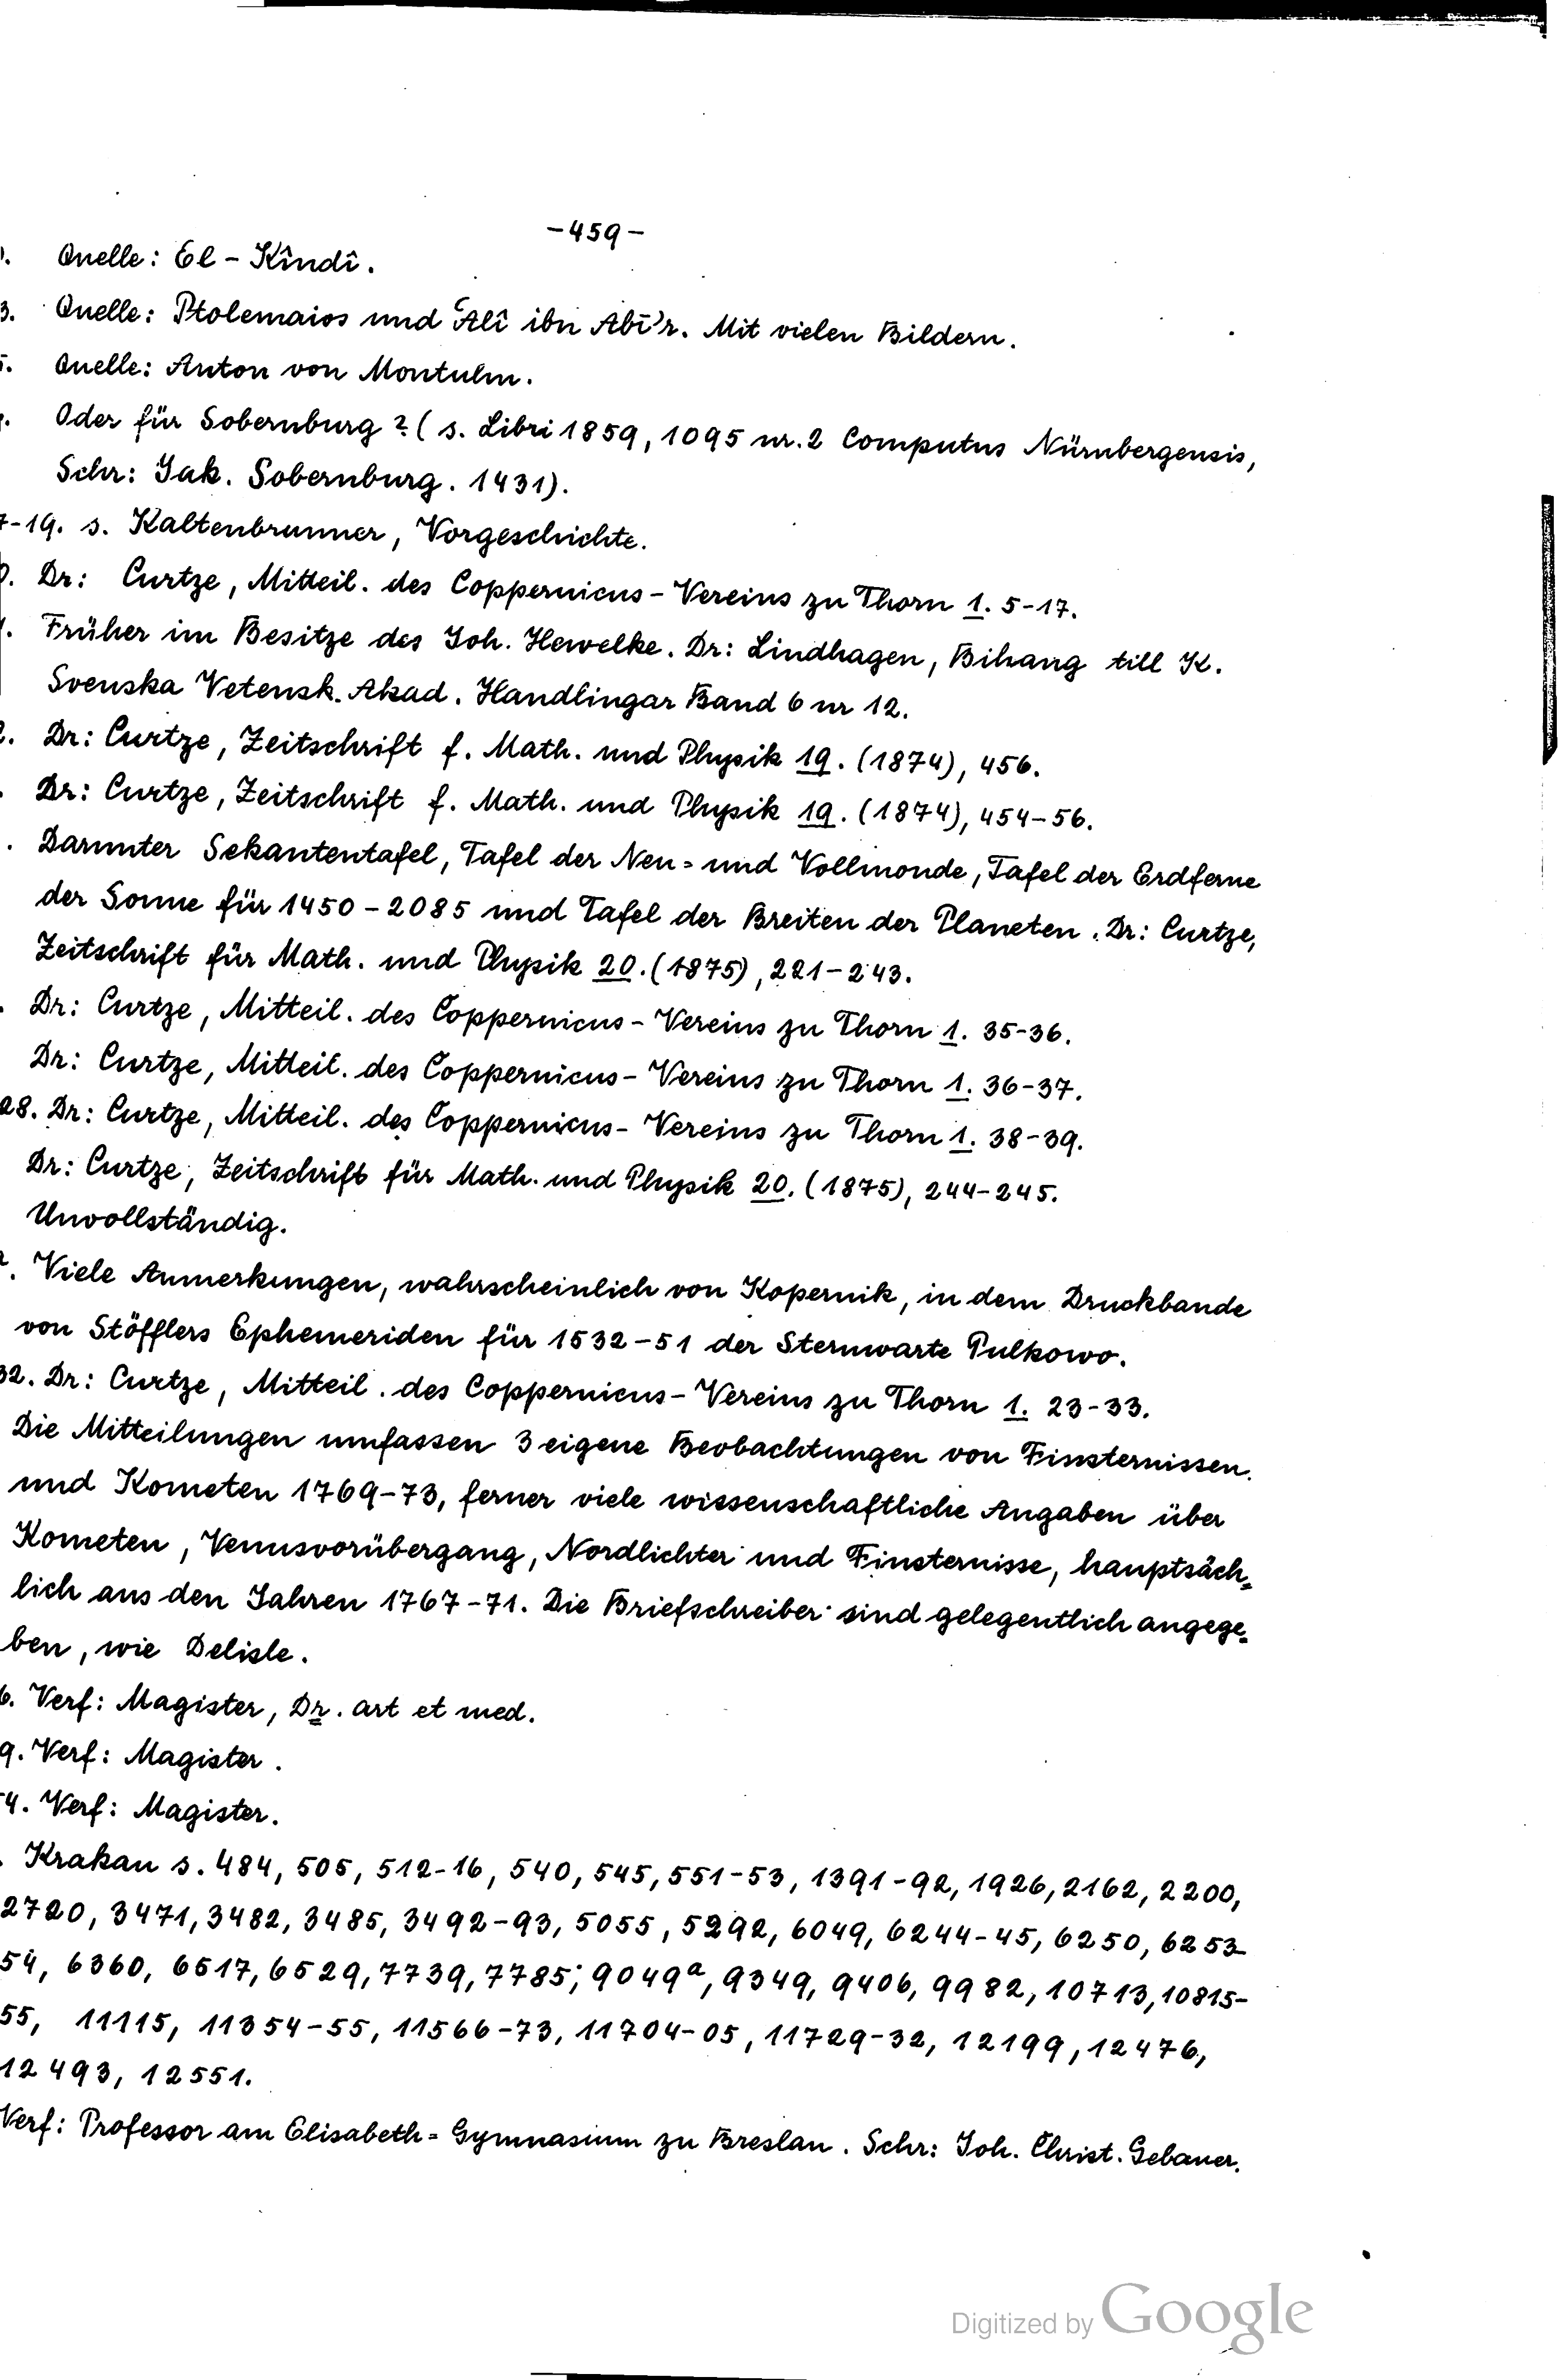 -459-
. Quelle: El-Kîndî.
3. Quelle: Ptolemaios und ʿAlî ibn Abī'r. Mit vielen Bildern.
5. Quelle: Anton von Montulm.
. Oder für Sobernburg? (s. Libri 1859, 1095 nr. 2 Computus Nürnbergensis,
Schr: Jak. Sobernburg. 1431).
7-19. s. Kaltenbrunner, Vorgeschichte.
0. Dr: Curtze, Mitteil. des Coppernicus-Vereins zu Thorn 1. 5-17.
1. Früher im Besitze des Joh. Hewelke. Dr: Lindhagen, Bihang till K.
Svenska Vetensk. Akad. Handlingar Band 6 nr 12.
2. Dr: Curtze, Zeitschrift f. Math. und Physik 19. (1874), 456.
. Dr: Curtze, Zeitschrift f. Math. und Physik 19. (1874), 454-56.
. Darunter Sekantentafel, Tafel der Neu= und Vollmonde, Tafel der Erdferne
der Sonne für 1450-2085 und Tafel der Breiten der Planeten. Dr: Curtze,
Zeitschrift für Math. und Physik 20. (1875), 221-243.
. Dr: Curtze, Mitteil. des Coppernicus-Vereins zu Thorn 1. 35-36.
Dr: Curtze, Mitteil. des Coppernicus-Vereins zu Thorn 1. 36-37.
28. Dr: Curtze, Mitteil. des Coppernicus-Vereins zu Thorn 1. 38-39.
Dr: Curtze, Zeitschrift für Math. und Physik 20. (1875), 244-245.
Unvollständig.
. Viele Anmerkungen, wahrscheinlich von Kopernik, in dem Druckbande
von Stöfflers Ephemeriden für 1532-51 der Sternwarte Pulkowo.
32. Dr: Curtze, Mitteil. des Coppernicus-Vereins zu Thorn 1. 23-33.
Die Mitteilungen umfassen 3 eigene Beobachtungen von Finsternissen
und Kometen 1769-73, ferner viele wissenschaftliche Angaben über
Kometen, Venusvorübergang, Nordlichter und Finsternisse, hauptsäch=
lich aus den Jahren 1767-71. Die Briefschreiber sind gelegentlich angege=
ben, wie Delisle.
6. Verf: Magister, Dr. art et med.
9. Verf: Magister.
4. Verf: Magister.
. Krakau s. 484, 505, 512-16, 540, 545, 551-53, 1391-92, 1926, 2162, 2200,
2720, 3471, 3482, 3485, 3492-93, 5055, 5292, 6049, 6244-45, 6250, 6253-
54, 6360, 6517, 6529, 7739, 7785; 9049a, 9349, 9406, 9982, 10713, 10815-
55, 11115, 11354-55, 11566-73, 11704-05, 11729-32, 12199, 12476,
12493, 12551.
Verf: Professor am Elisabeth=Gymnasium zu Breslau. Schr: Joh. Christ. Gebauer.
Digitized by Google